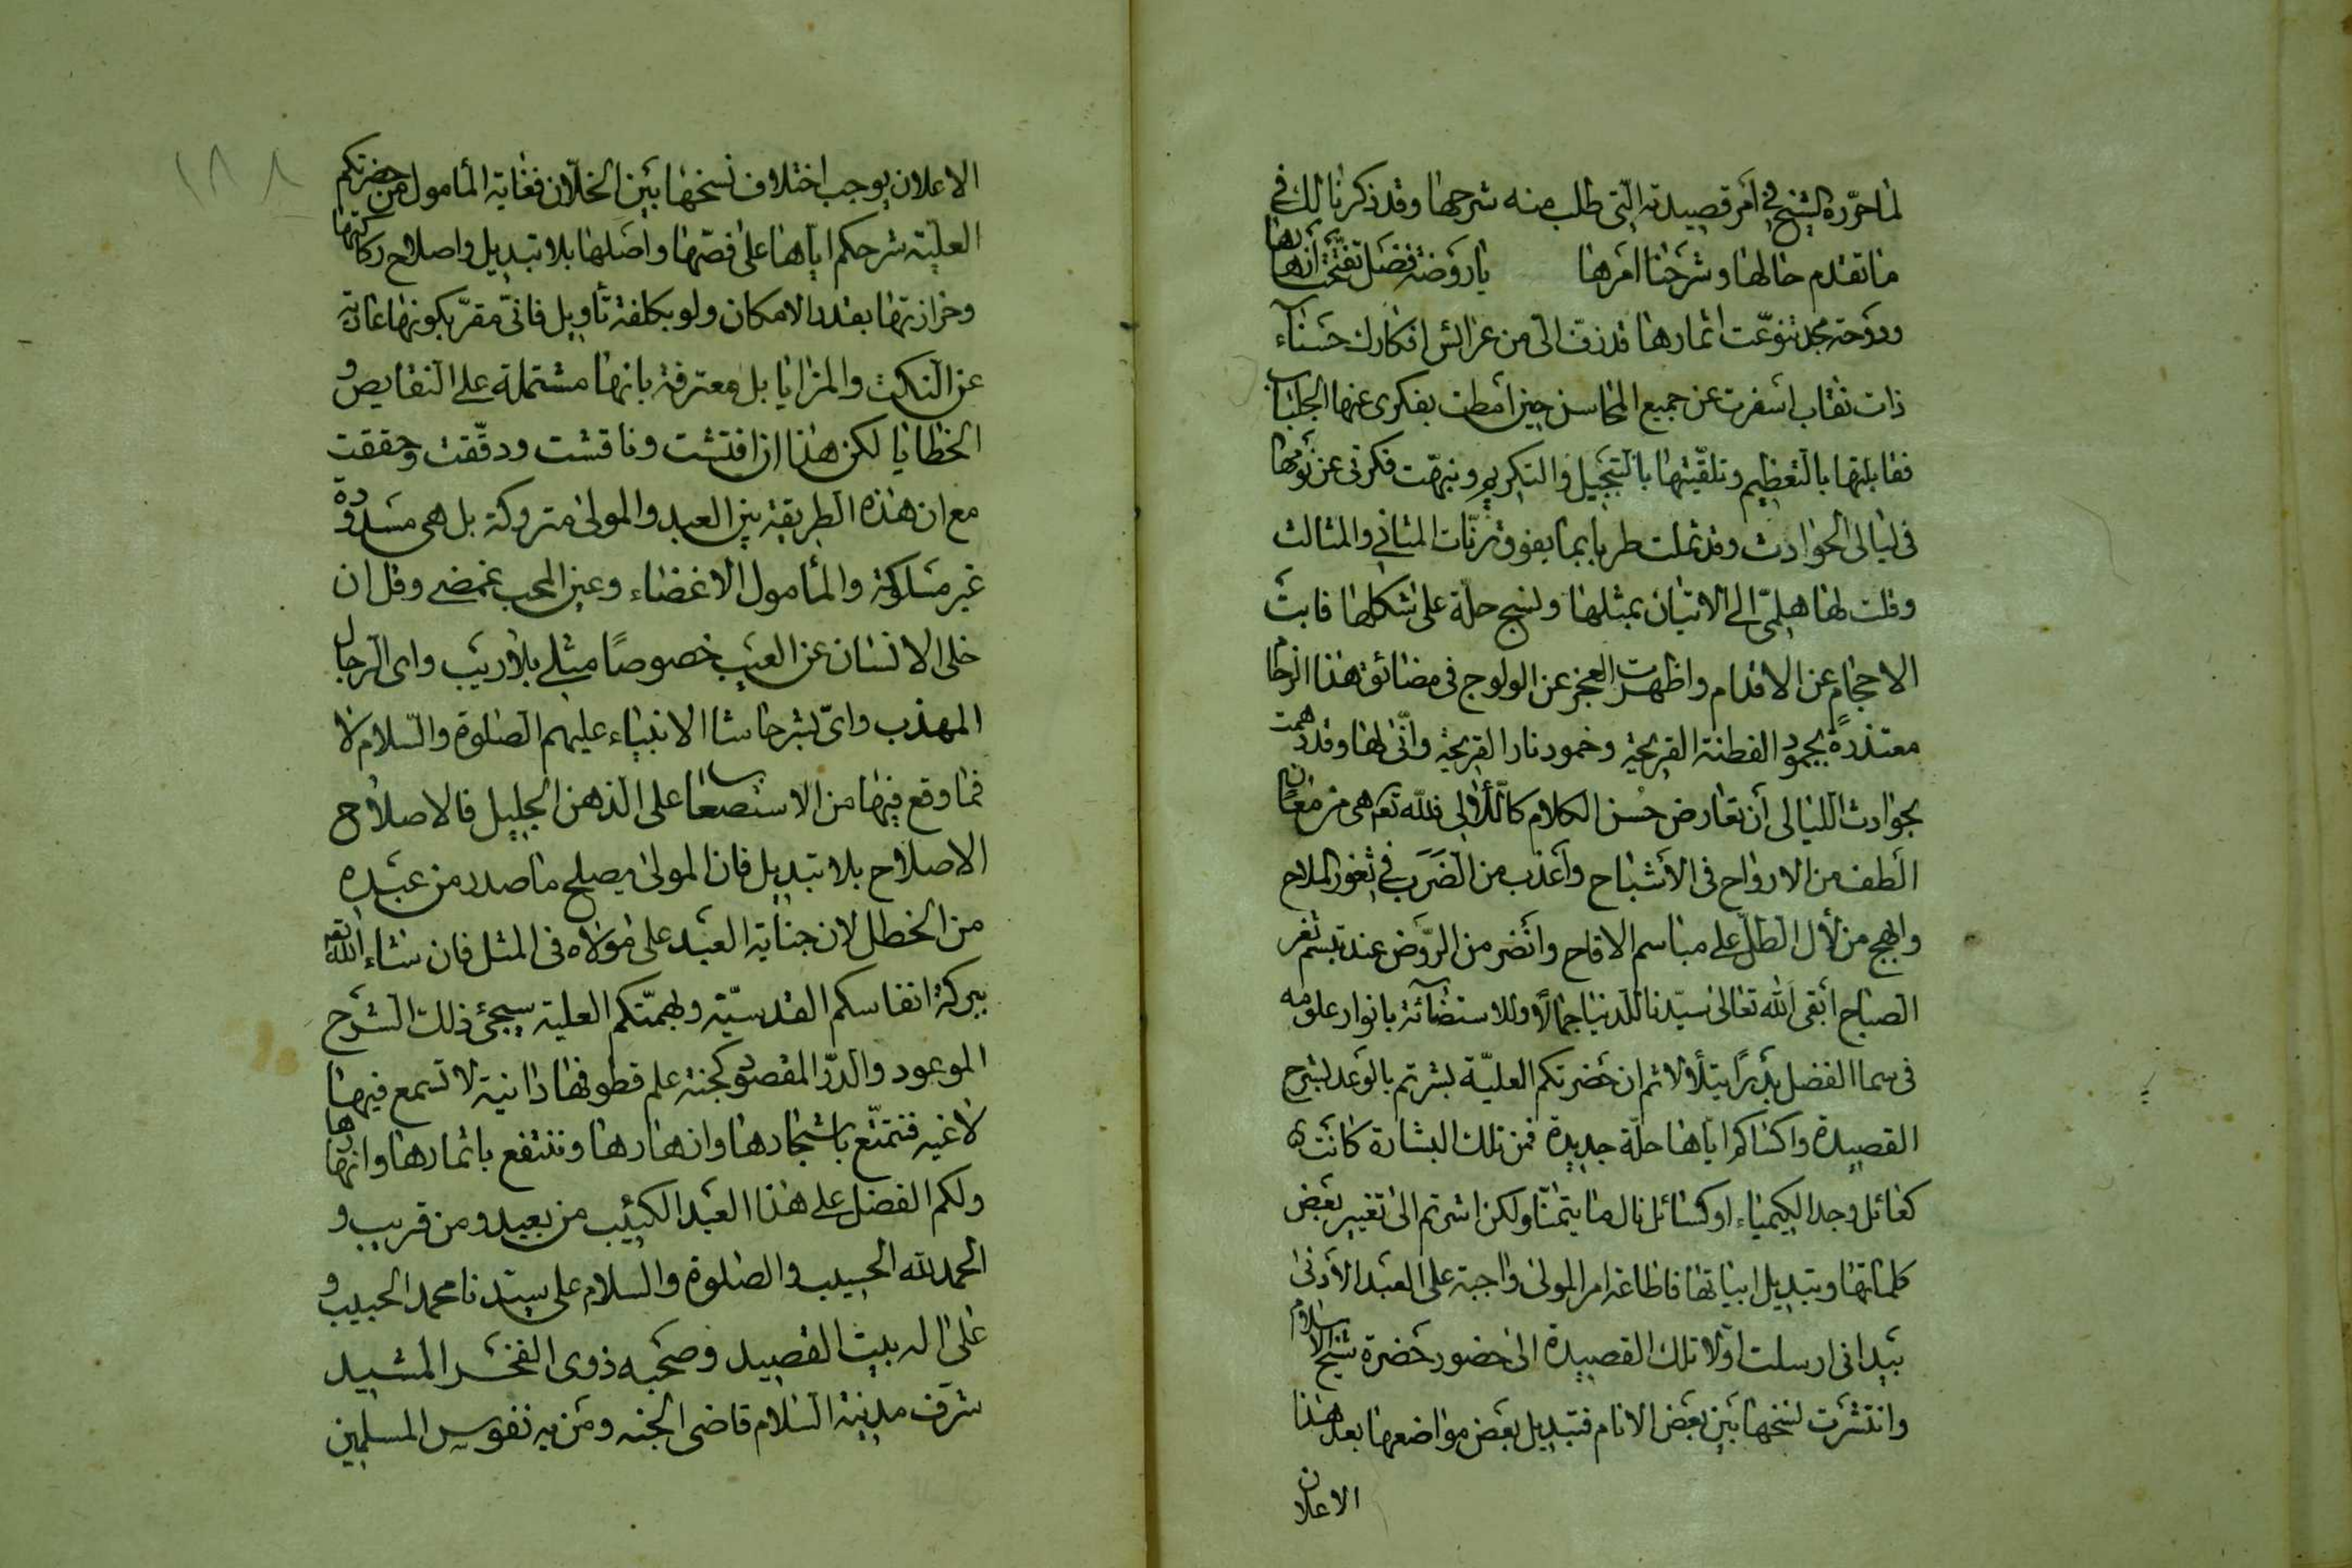 لما حرّره الشيخ في أمر قصيدته التي طلب منه شرحها وقد ذكرنا لك في
ما تقدم حالها وشرحنا امرها يا روضة فضل تفتّحت أزهارها
ودوحة مجد تنوّعت اثمارها قد زفّ الي من عرائس افكارك حسناء
ذات نقاب اسفرت عن جميع المحاسن حين أمطت بفكري عنها الجلباب
فقابلتها بالتعظيم وتلقّيتها بالتبجيل والتكريم ونبهّت فكرتي عن نومها
في ليالي الحوادث وقد ثملت طربا بما يفوق رنّات المثاني والمثالث
وقلت لها هلمّي الى الاتيان بمثلها ونسج حلّة على شكلها فابت
الاحجام عن الاقدام واظهرت العجز عن الولوج في مضائق هذا الزحام
معتذرةً بجمود الفطنة القريحة وخمود نار القريحة وانّى لها وقد دهمت
بحوادث الليالي أن تعارض حُسن الكلام كاللألي فلله تعم هي من معان
الطف من الارواح في الأشباح وأعذب من الضَرَب في ثغور الملاح
وابهج من لأل الطلّ على مباسم الاقاح وانضر من الروض عند تبسم ثغر
الصباح أبقى الله تعالى سيّدنا للدنيا جمالاً وللاستضآئة بانوار علومه
في سما الفضل بدرًا يتلألا ثم ان حضرتكم العليّة بشرتم بالوعد بشرح
القصيدة واكساكم اياها حلّة جديدة فمن تلك البشارة كانت
كعائل وجد الكيمياء او كسائل نال ما يتمنّا ولكن اشرتم الى تغيير بعض
كلماتها وتبديل ابياتها فاطاعة امر المولى واجبة على العبد الأدنى
بيد اني ارسلت اولا تلك القصيدة الى حضور حضرة شيخ الاسلام
وانتشرت نسخها بين بعض الانام فتبديل بعض مواضعها بعد هذا
الاعلان
الاعلان يوجب اختلاف نسخها بين الخلّان فغاية المأمول من حضرتكم
العليّة شرحكم اياها على فصّها واصلها بلا تبديل واصلاح ركاكتها
وحزازتها بقدر الامكان ولو بكلفة تأويل فاني مقرّ بكونها عارية
عن النكت والمزايا بل معترفة بانها مشتملة على النقايص و
الخطايا لكن هذا اذا فتشت وناقشت ودقّقت وحققت
مع ان هذه الطريقة بين العبد والمولى متروكة بل هي مسدودة
غير مسلوكة والمأمول الاغضاء وعين المحب غمضى وقل ان
خلى الانسان عن العيب خصوصًا مثلي بلا ريب واي الرجال
المهذب وايّ بشر حاشا الانبياء عليهم الصلوة والسلام لا
فما وقع فيها من الاستصعاب على الذهن الجليل فالاصلاح
الاصلاح بلا تبديل فان المولى يصلح ما صدر من عبده
من الخطل لان جناية العبد على مولاه في المثل فان شاء الله تعم
ببركة انفاسكم القدسيّة وبهمّتكم العلية سيجئ ذلك الشرح
الموعود والدرّ المقصود كجنة علم قطوفها دانية لا تسمع فيها
لاغيه فنتمتّع باشجارها وانهارها وننتفع باثمارها وازهارها
ولكم الفضل على هذا العبد الكئيب من بعيد ومن قريب و
الحمد لله الحسيب والصلوة والسلام على سيدنا محمد الحبيب و
على اله بيت القصيد وصحبه ذوي الفخر المشيد
شرّف مدينة السلام قاضي الجنه ومن به نفوس المسلمين
١٨٨